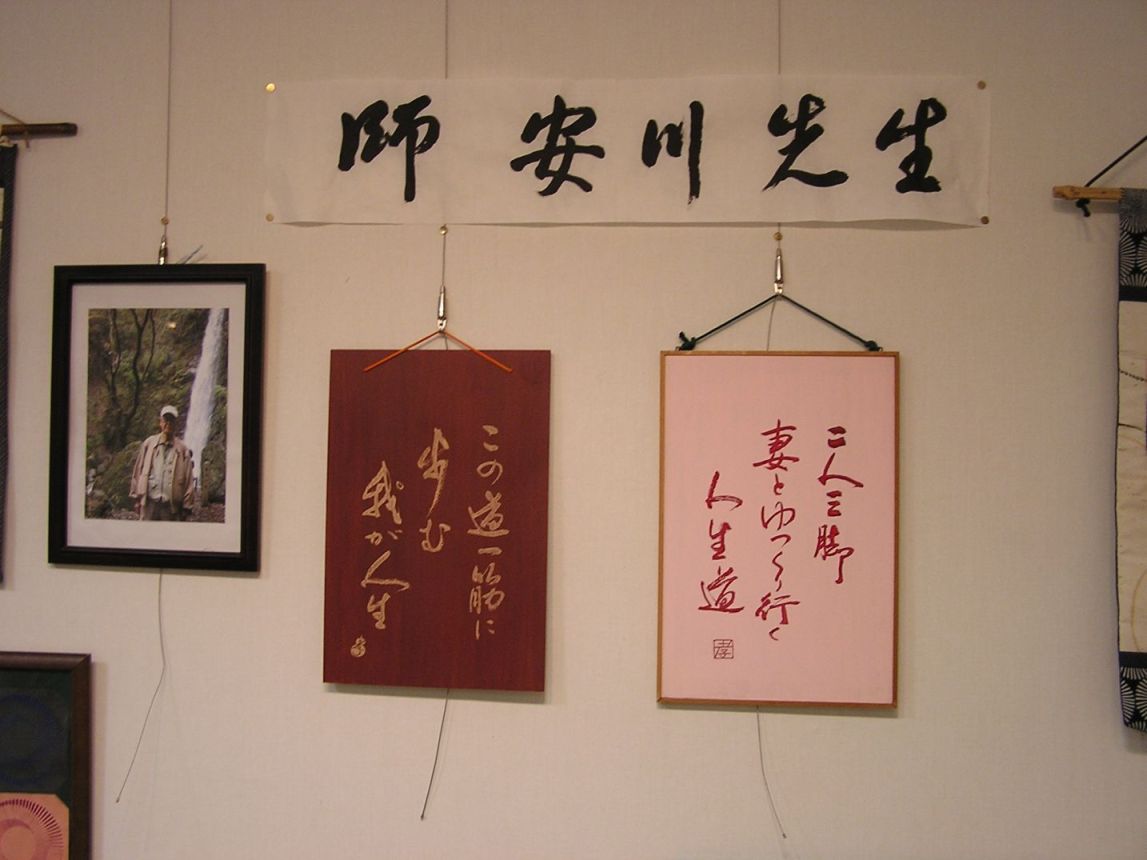 師 安川先生
この道一筋に
歩む
我が人生
二人三脚
妻とゆっくり行く
人生道
孝